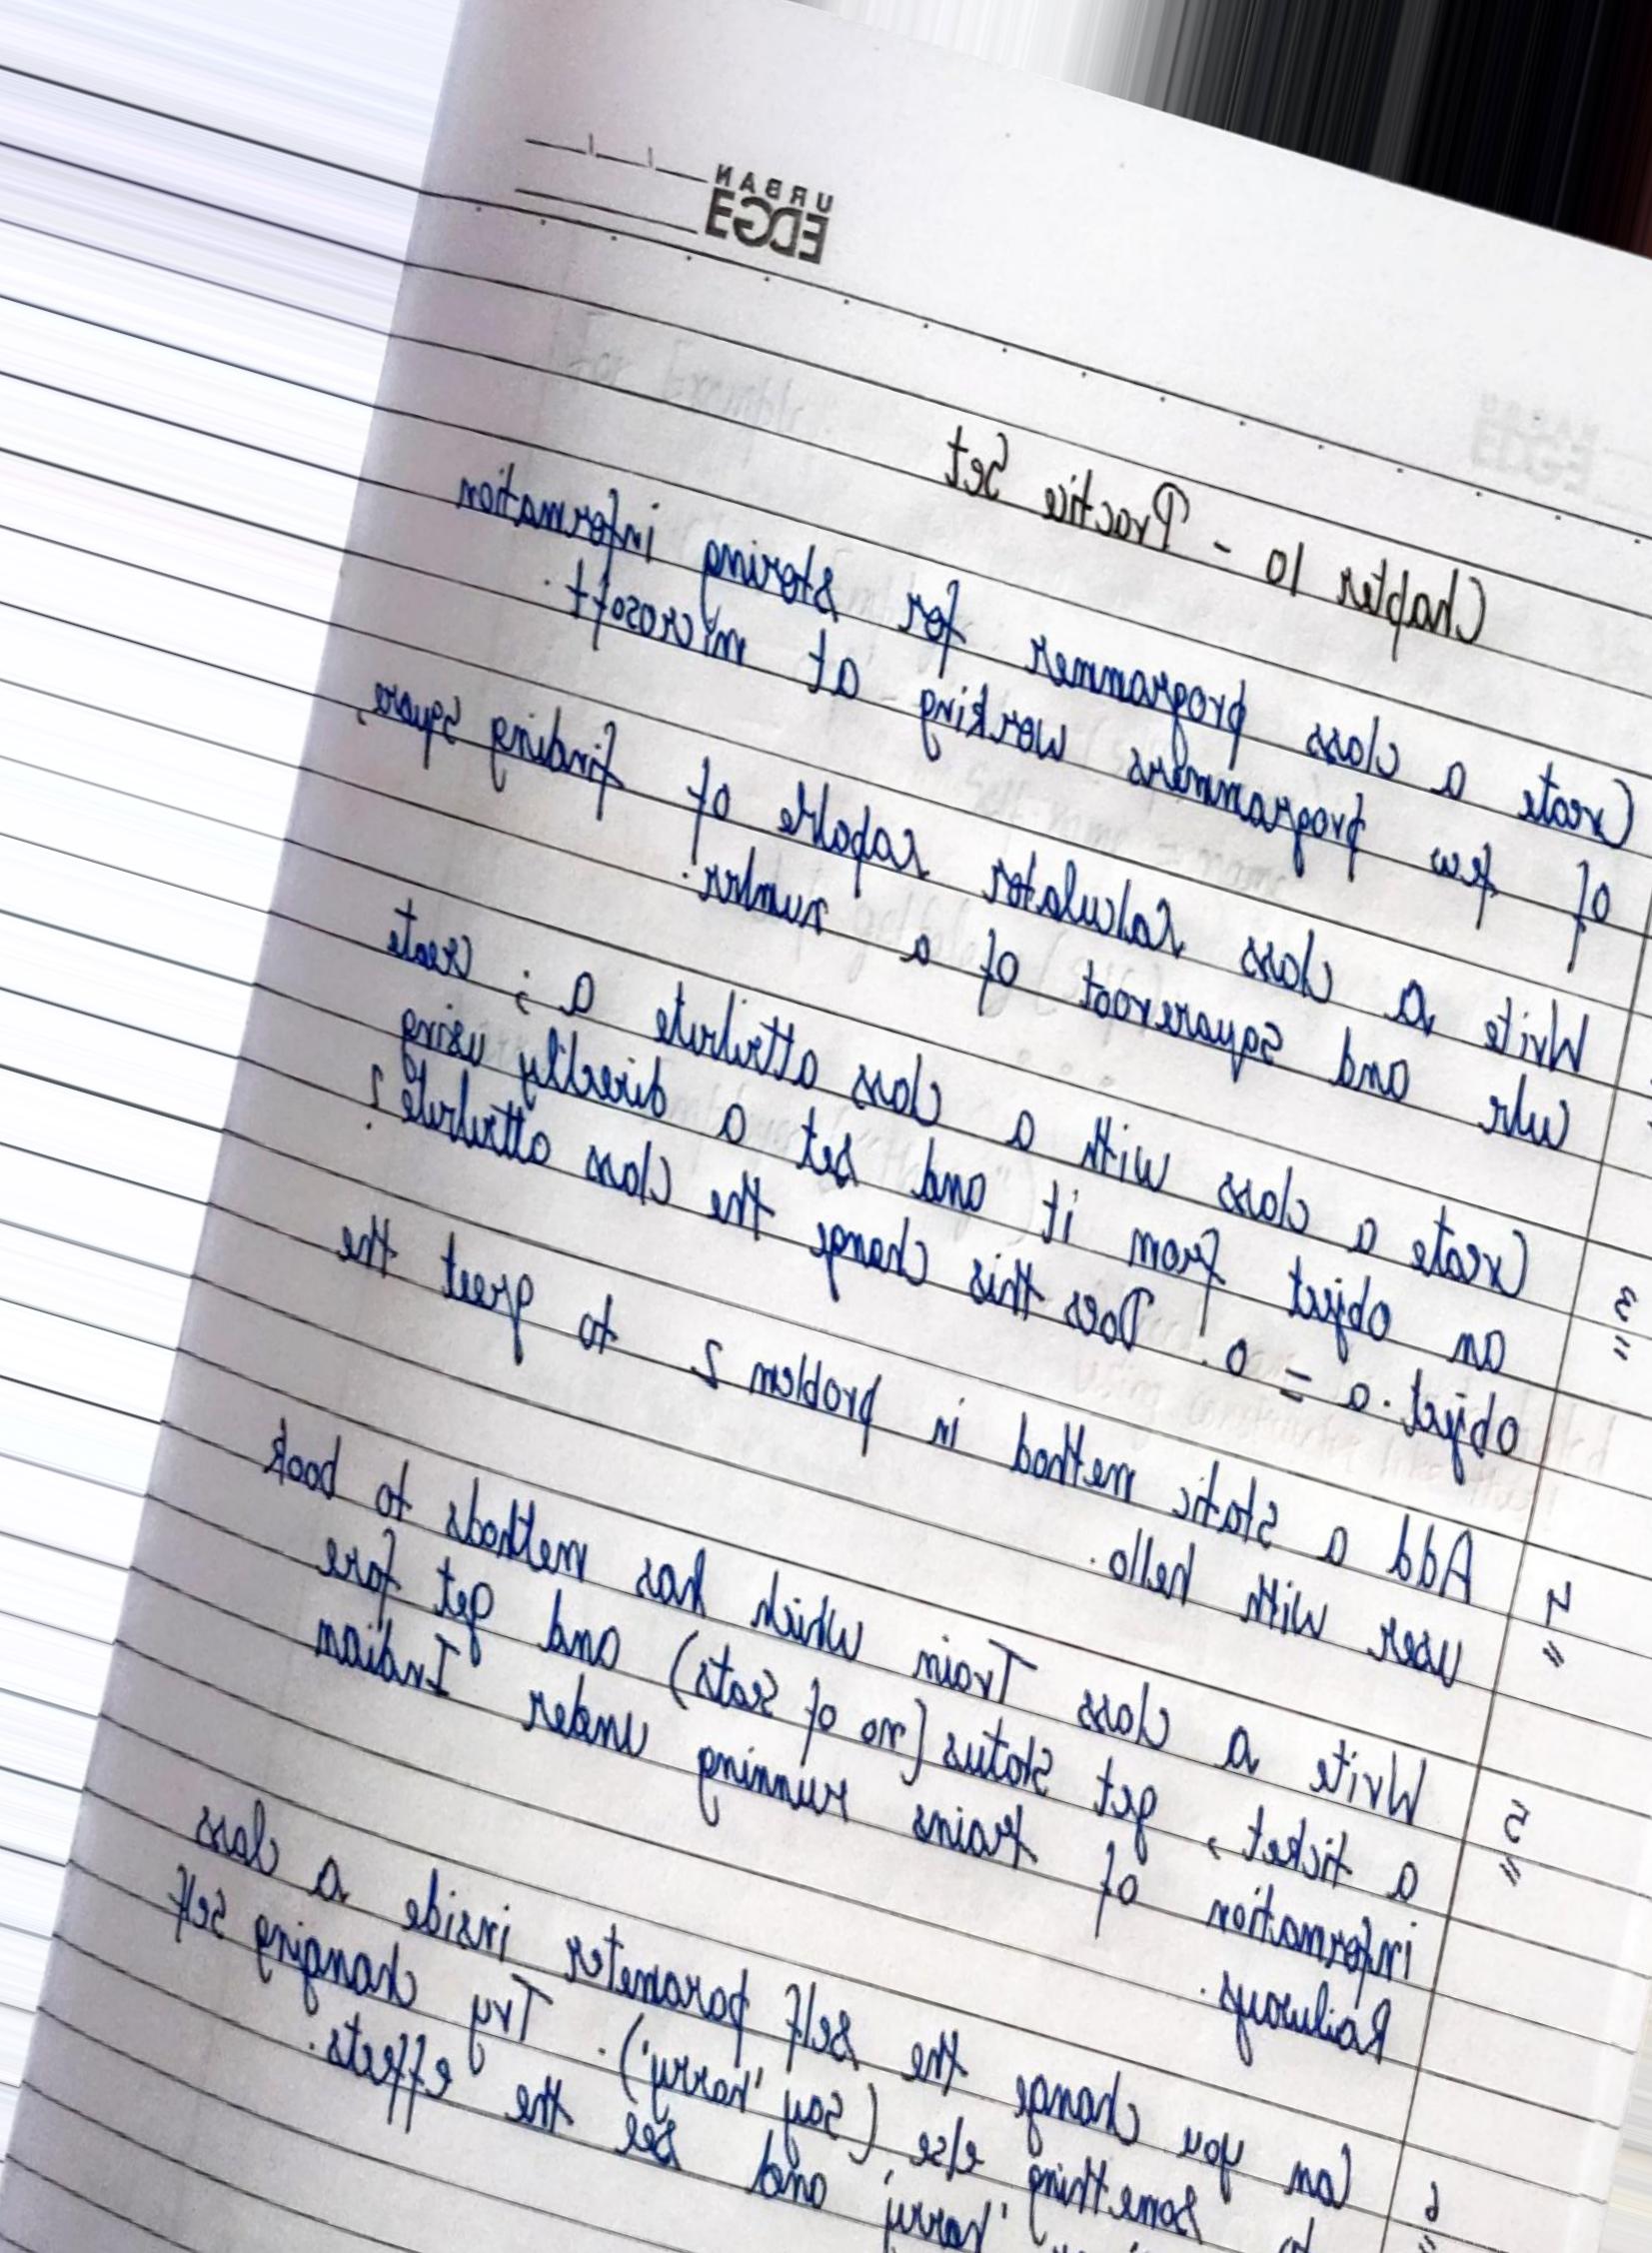 URBAN
EDGE
Chapter 10 - Practice Set
Create a class programmer for storing information
of few programmers working at microsoft.
Write a class calculator capable of finding square,
cube and squareroot of a number.
3" Create a class with a class attribute a ; create
an object from it and set a directly using
object.a = 0. Does this change the class attribute?
4" Add a static method in problem 2 to greet the
user with hello.
5" Write a class Train which has methods to book
a ticket, get status (no of seats) and get fare
information of trains running under Indian
Railways.
6" Can you change the self parameter inside a class
to something else (say 'harry'). Try changing self
'harry' and see the effects.